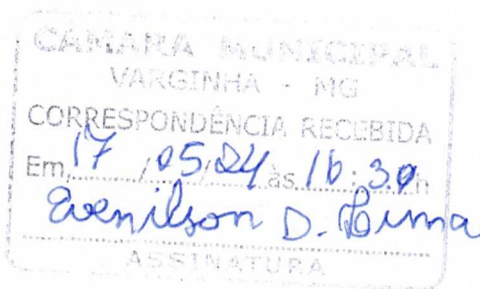 CÂMARA MUNICIPAL
VARGINHA - MG
CORRESPONDÊNCIA RECEBIDA
Em, 17 / 05/24 às 16:30 h
Evenilson D. Lima
ASSINATURA